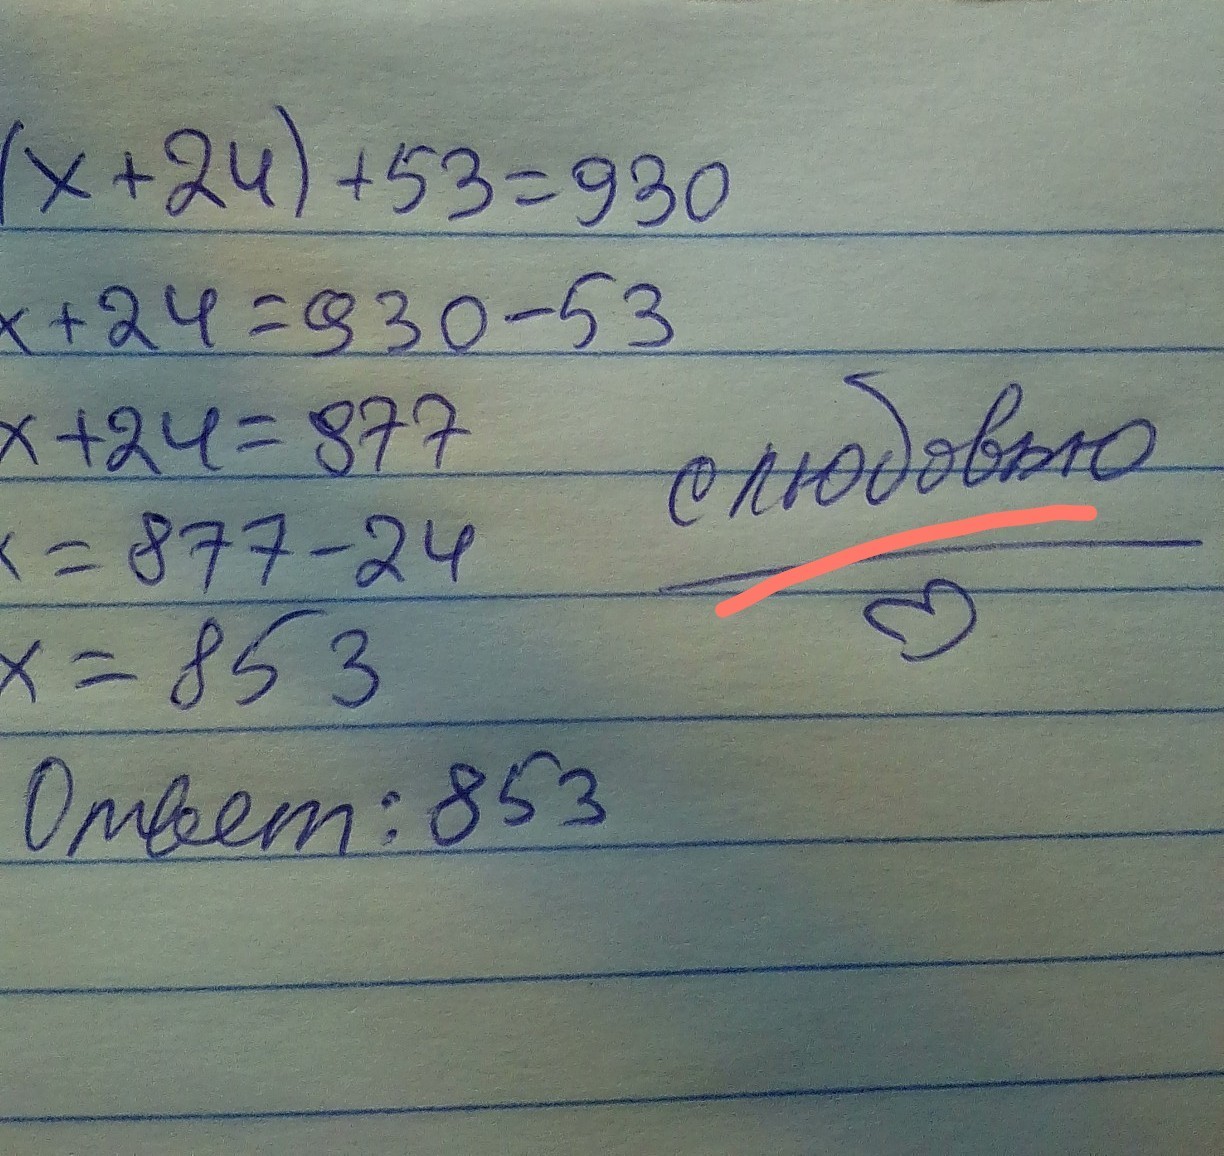 (x+24)+53=930
x+24=930-53
x+24=877
x=877-24
x=853
Ответ: 853
с любовью